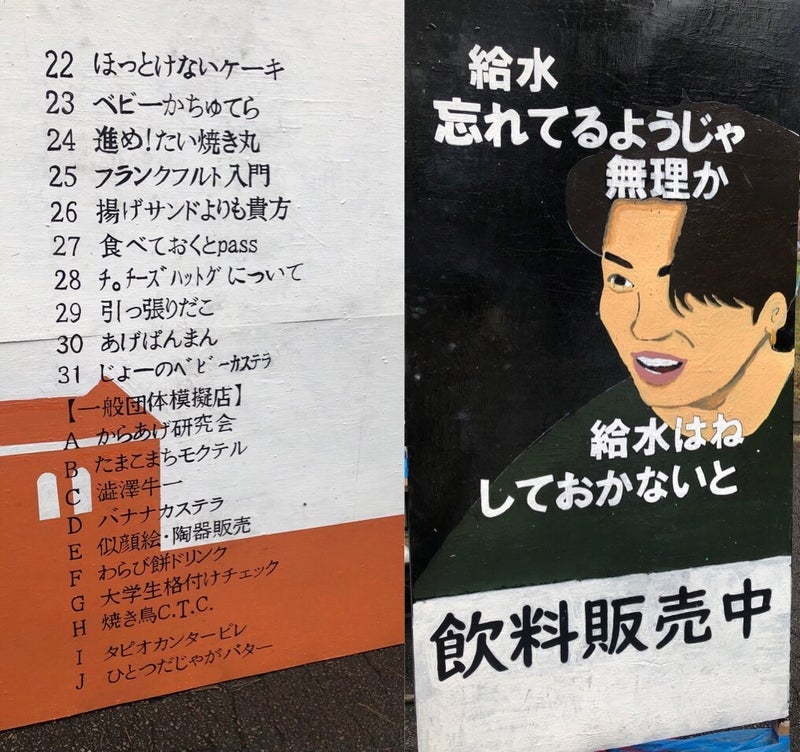 22 ほっとけないケーキ
23 ベビーかちゅてら
24 進め!たい焼き丸
25 フランクフルト入門
26 揚げサンドよりも貴方
27 食べておくとpass
28 チ。チーズハットグについて
29 引っ張りだこ
30 あげぱんまん
31 じょーのベビーカステラ
【一般団体模擬店】
A からあげ研究会
B たまこまちモクテル
C 澁澤牛一
D バナナカステラ
E 似顔絵・陶器販売
F わらび餅ドリンク
G 大学生格付けチェック
H 焼き鳥C.T.C.
I タピオカンタービレ
J ひとつだじゃがバター
給水
忘れてるようじゃ
無理か
給水はね
しておかないと
飲料販売中